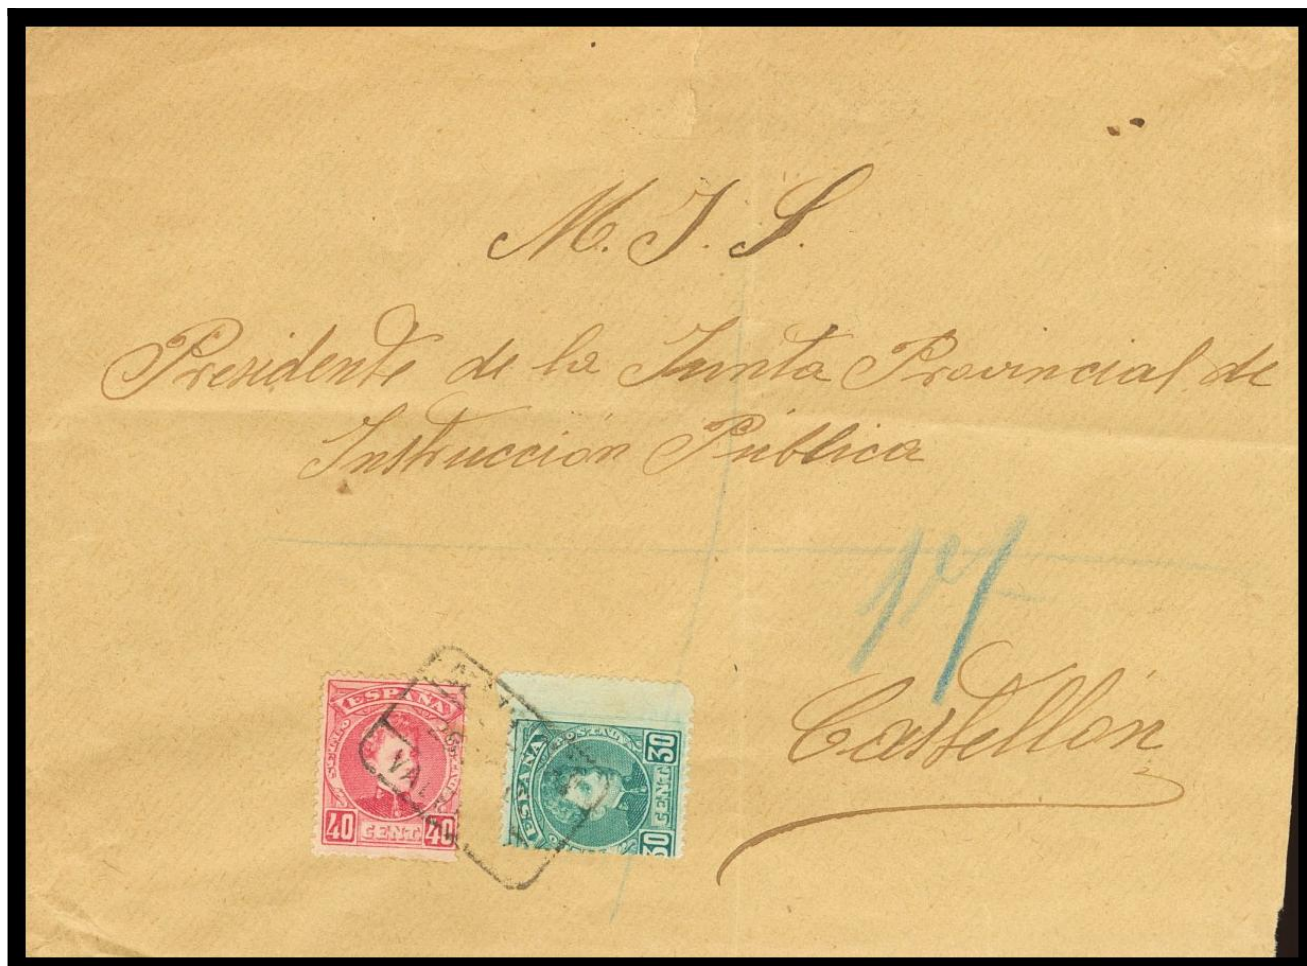 M. I. S.
Presidente de la Junta Provincial de
Instrucción Pública
Castellón
ESPAÑA
40 CENT. 40
ESPAÑA
30 CENT. 30